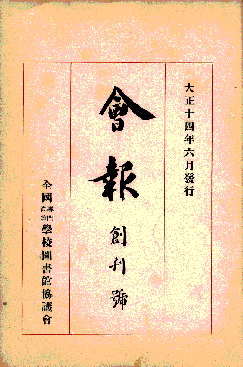 大正十四年六月發行
會報 創刊號
全國專門高等學校圖書館協議會